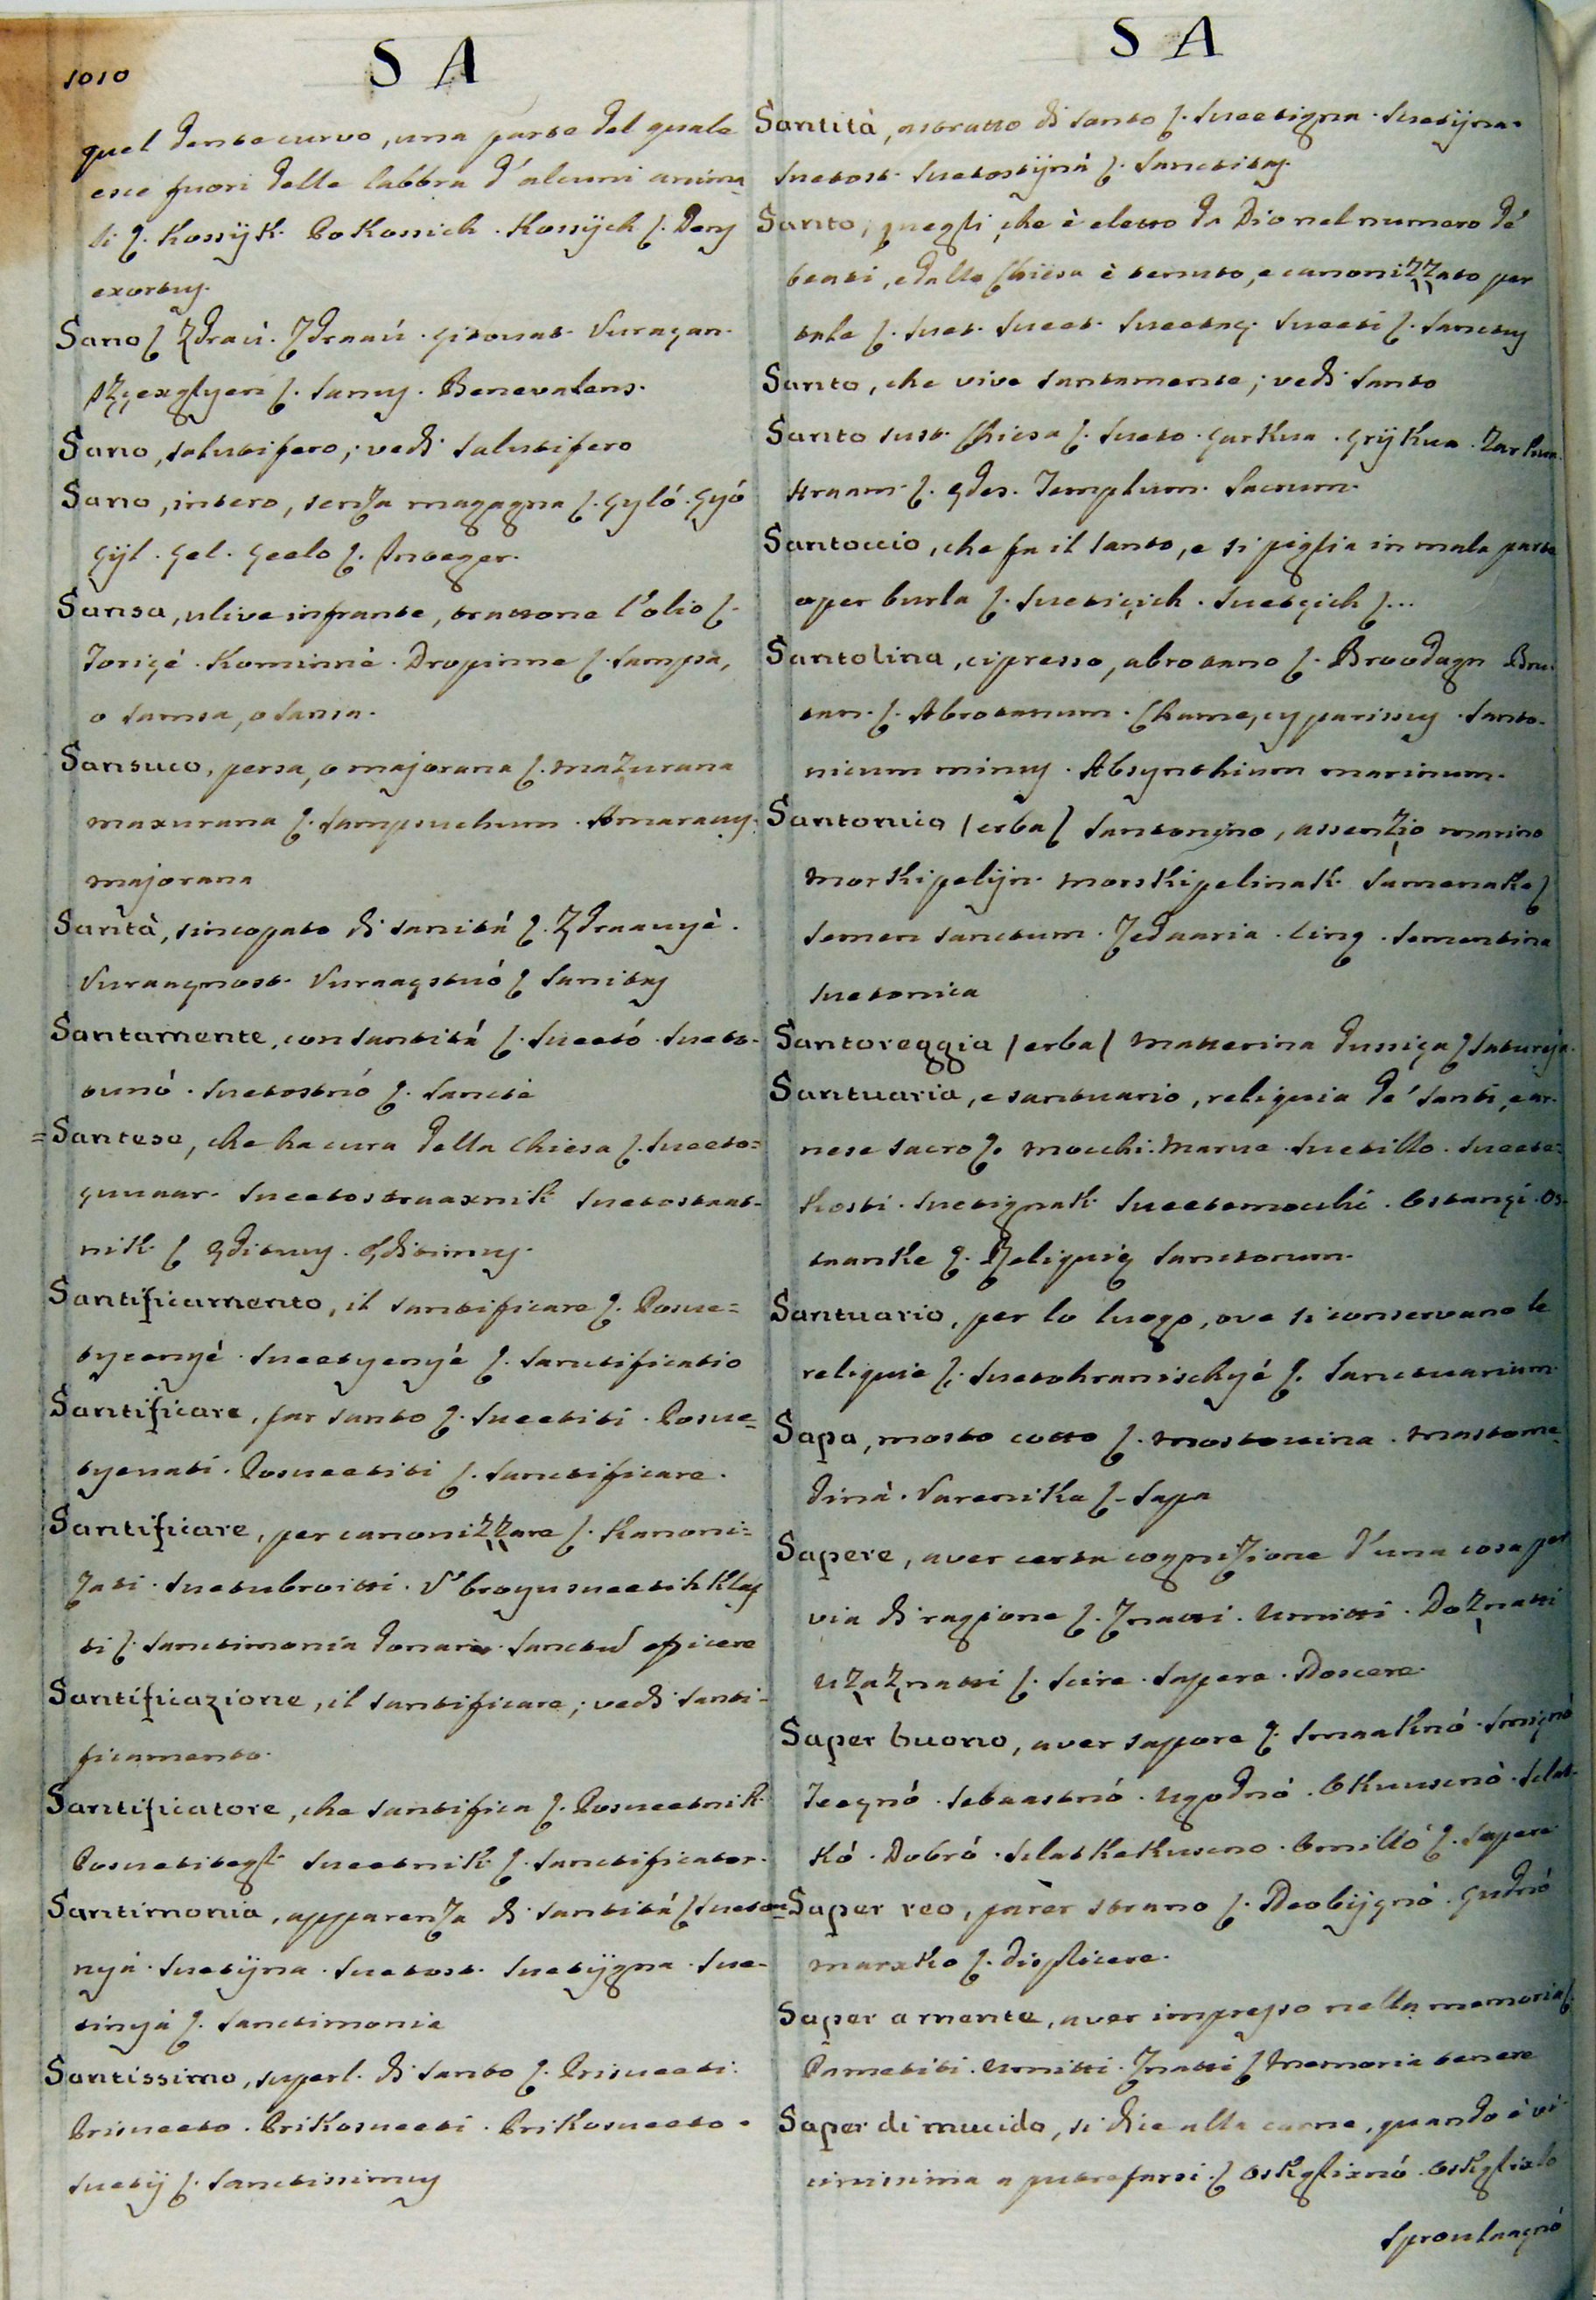 1010
S A
quel dente curvo, una parte del quale
esce fuori delle labbra d'alcuni anima-
li ſ. Kossijk. Po Kossich. Kossijch ſ. Dens
exortus.
Sano ſ. Zdraú. Zdraaú. Gitouat. Vuraçan.
ſ. Sanus. Benevalens.
Sano, salutifero; vedi Salutifero
Sano, intero, senza magagna ſ. Çyló. Çyó
Çijl. Çel. Çeelo ſ. Integer.
Sansa, ulive infrante, trattone l'olio ſ.
Toriçé. Kominné. Dropinne ſ. Sampsa,
o Samsa, o Sansa.
Sansuco, persa, o majorana ſ. Mazurana
maxurana ſ. Sampsuchum. Amaracus.
majorana
Santà, sincopato di sanità ſ. Zdraauyè.
Vuraagnost. Vuraaçstuó ſ. Sanitas
Santamente, con santità ſ. Sueetó. Sueto-
tunó. Suetostnó ſ. Sanctè
=Santese, che ha cura della Chiesa ſ. Sueeto=
çuuaar. Sueetostraaxnik. Suetostraat-
nik ſ. Ędituus. Ęditimus.
Santificamento, il santificare ſ. Posue=
tycenyé. Sueetyenyé ſ. Sanctificatio
Santificare, far santo ſ. Sueetiti. Posue=
tyeuati. Posueetiti ſ. Sanctificare.
Santificare, per canonizzare ſ. Kanoni=
zati. Suetubroitti. V' broyusueetih Klas
ti ſ. Sanctimonia donare. Sanctum efficere
Santificazione, il santificare; vedi Santi-
ficamento.
Santificatore, che santifica ſ. Posueetnik.
Posuetitegli. Sueetnik ſ. Sanctificator.
Santimonia, apparenza di santità ſ. Sueto
nyá. Suetijna. Suetost. Suetijgna. Sue-
tinyá ſ. Sanctimonia
Santissimo, superl. di Santo ſ. Prisueeti.
Prisueeto. PriKosueeti. PriKosueeto.
Suetij ſ. Sanctissimus
S A
Santità, astratto di Santo ſ. Sueetigna. Suetijna.
Suetost. Suetostijná ſ. Sanctitas.
Santo, quegli, che è eletto da Dio nel numero de'
beati, e dalla Chiesa è tenuto, e canonizzato per
tale ſ. Suet. Sueet. Sueetaç. Sueeti ſ. Sanctus
Santo, che vive santamente; vedi Santo
Santo sust. Chiesa ſ. Sueto. Çarkua. Çrijkua. Zarkua.
Hraam. ſ. Ędes. Templum. Sacrum.
Santoccio, che fa il santo, e si piglia in mala parte
o per burla ſ. Suetiçich. Suetçich ſ...
Santolina, cipresso, abrotano ſ. Broodagn Bru-
tan. ſ. Abrotanum. Chamęcyparissus. Santo-
nicum minus. Absynthium marinum.
Santonico (erba) Santonino, assenzio marino
Morski pelijn. Morski pelinak. Samenaka ſ
Semen sanctum. Zeduaria. Ling. Sementina
Suetonica
Santoreggia (erba) Matterina dussiça ſ Satureja.
Santuaria, e santuario, reliquia de' Santi, e ar-
nese sacro ſ. Mocchi. Marue. Suetillo. Sueete=
Kosti. Suetignak. Sueetemocchi. Ostançi. Os-
taanke ſ. Reliquię Sanctorum.
Santuario, per lo luogo, ove si conservano le
reliquie ſ. Suetohranischyé ſ. Sanctuarium.
Sapa, mosto cotto ſ. Mostouina. Mastome-
dinà. Varenika ſ. Sapa
Sapere, aver certa cognizione d'una cosa per
via di ragione ſ. Znatti. Umitti. Doznatti
Uzaznatti ſ. Scire. Sapere. Doscere.
Saper buono, aver sapore ſ. Smaaknó. Smignó
Teegnó. Sebaastnó. Ugodnó. Okuusenò. Slat-
kó. Dobró. Slatkokuseno. Omilló ſ. Sapere
Saper reo, parer strano ſ. Neobijçnó. Çudnó
marxko ſ. displicere.
Saper a mente, aver impresso nella memoria ſ.
Pametiti. Umitti. Znatti ſ Memoria tenere
Saper di mucido, si dice alla carne, quando è vi-
cinissima a putrefarsi. ſ Oskglixnó. Oskglixlo
Sproulaagnó